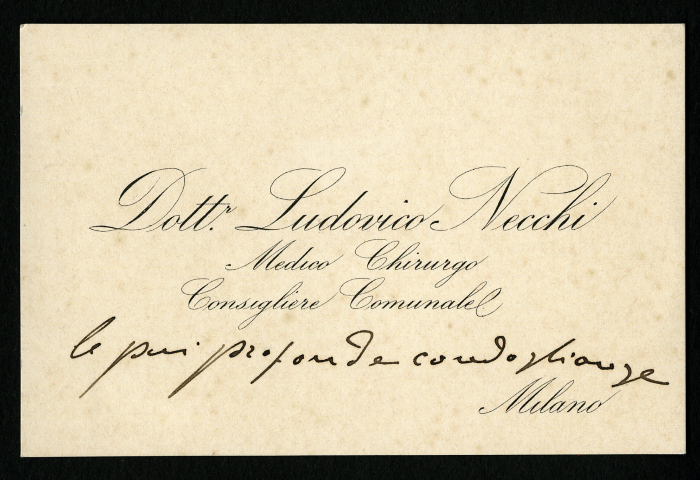 Dott.r Ludovico Necchi
Medico Chirurgo
Consigliere Comunale
le più profonde condoglianze
Milano